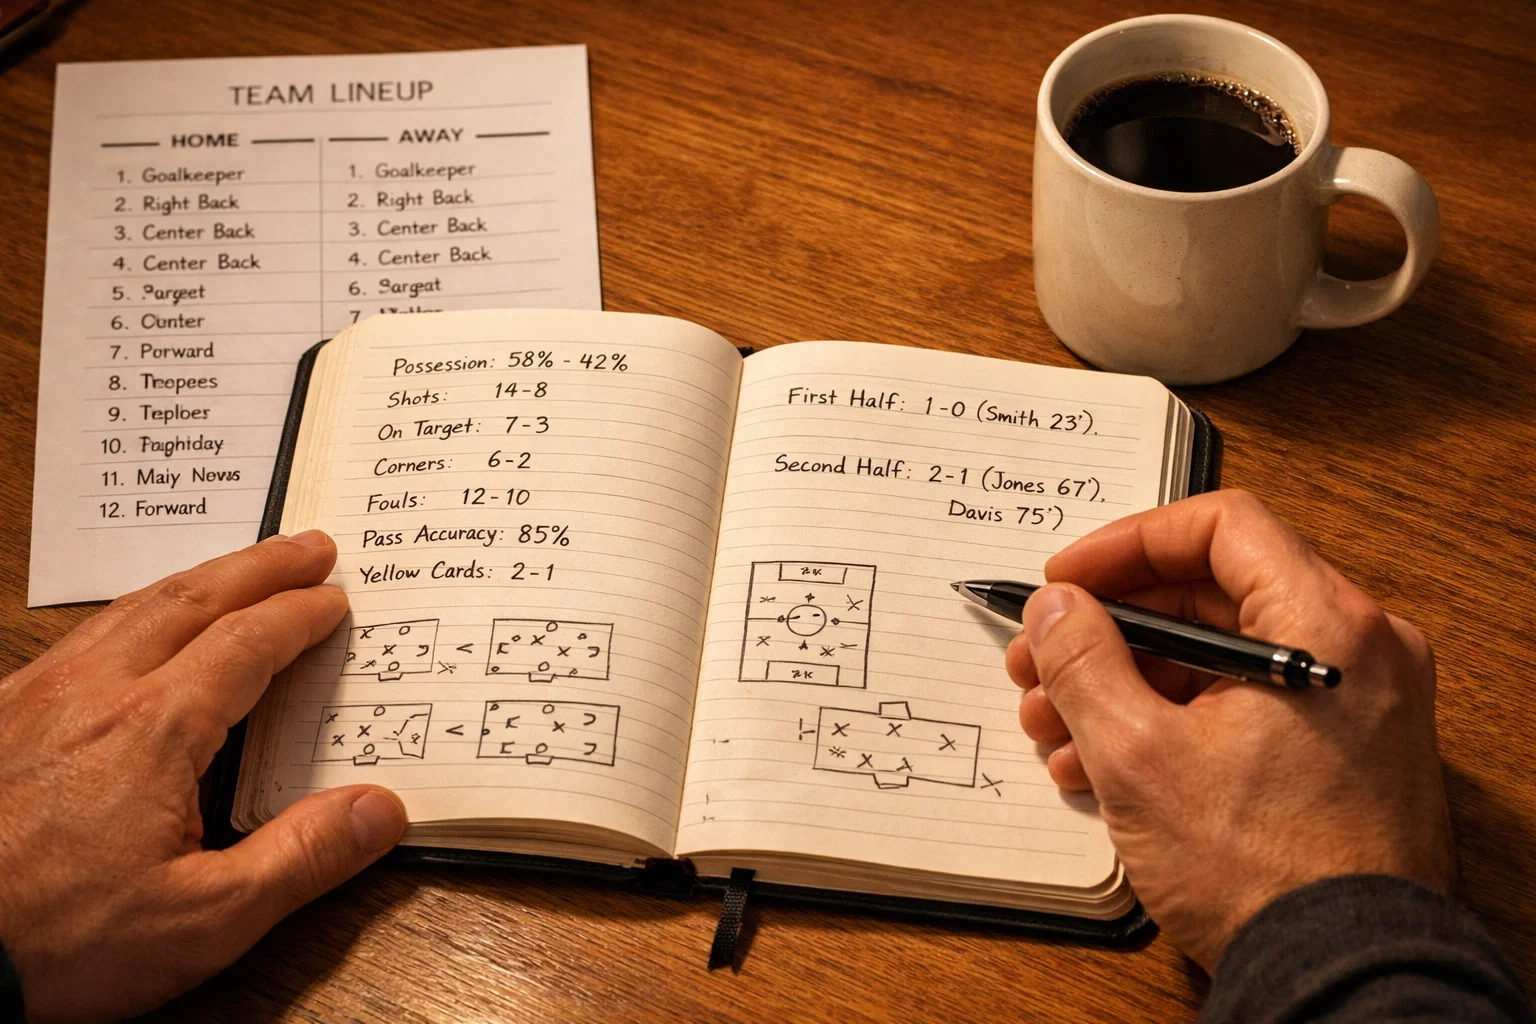 TEAM LINEUP
HOME
1. Goalkeeper
2. Right Back
3. Center Back
4. Center Back
5.
6.
7. Porward
8.
9. Teploer
10.
11. Maiy News
12. Forward
AWAY
1. Goalkeeper
2. Right Back
3. Center Back
4. Center Back
6. Sargeat
7.
Possession: 58% - 42%
Shots: 14-8
On Target: 7-3
Corners: 6-2
Fouls: 12-10
Pass Accuracy: 85%
Yellow Cards: 2-1
First Half: 1-0 (Smith 23').
Second Half: 2-1 (Jones 67'),
Davis 75')